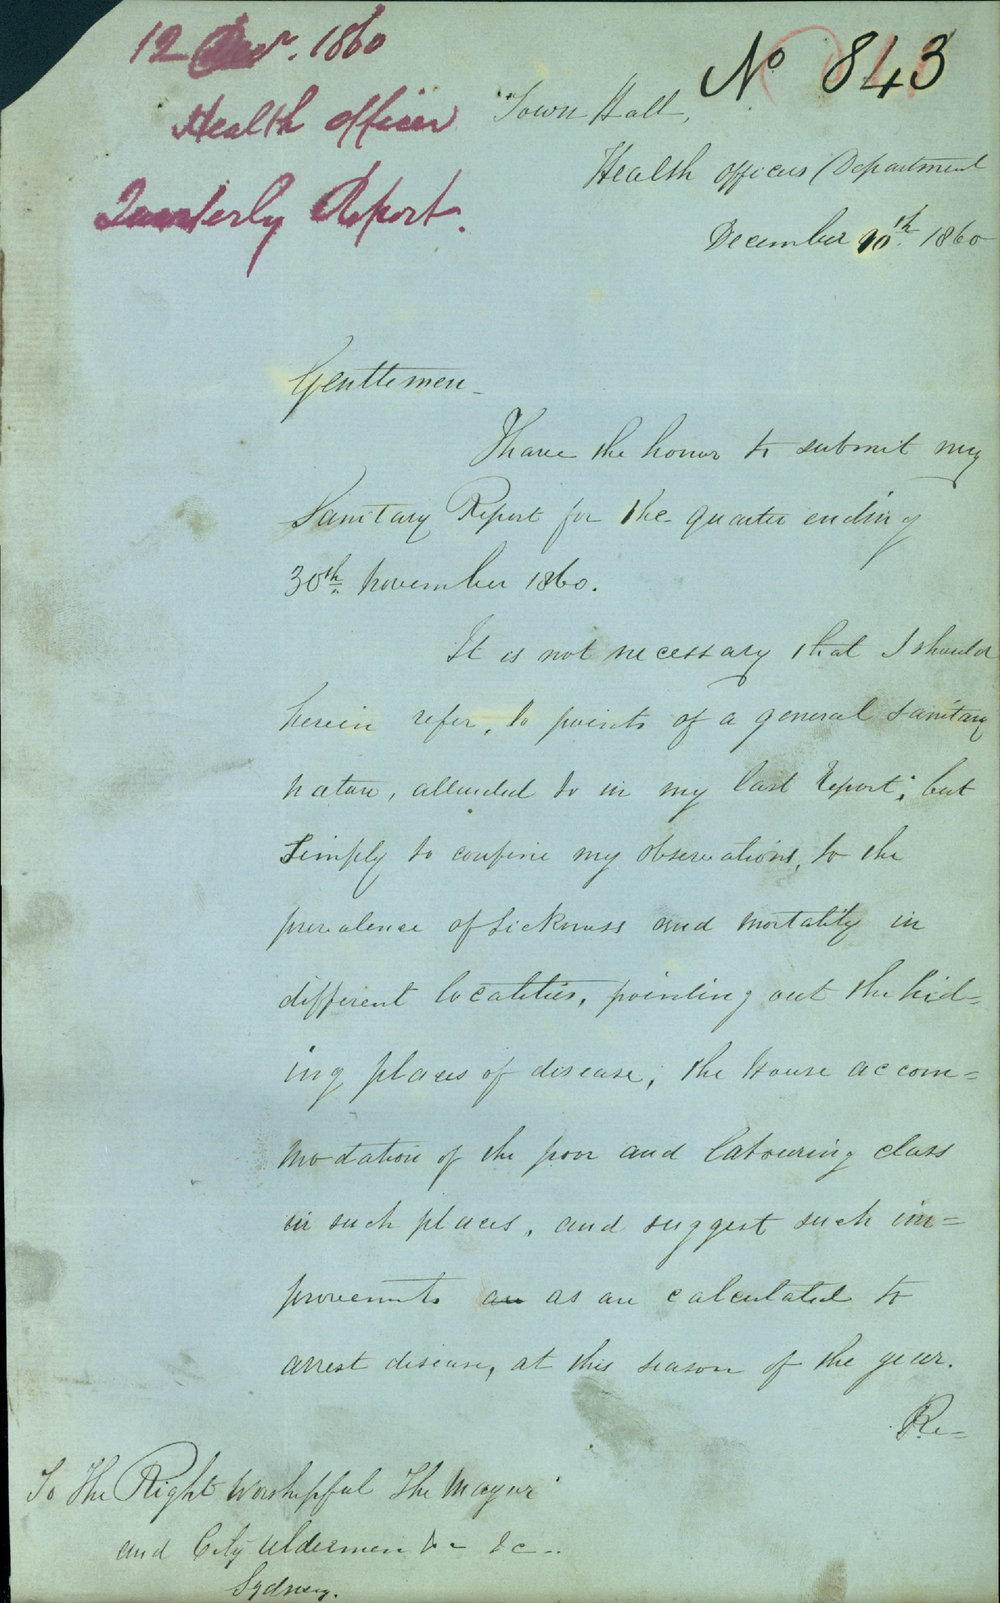 12 Decr. 1860
Health Officer
Quarterly Report.
No 843
Town Hall,
Health Officers Department
December 10th. 1860
Gentlemen
I have the honor to submit my
Sanitary Report for the quarter ending
30th November 1860.
It is not necessary that I should
herein refer, to points of a general sanitary
nature, alluded to in my last Report; but
simply to confine my observations, to the
prevalence of sickness and mortality in
different localities, pointing out the hid=
ing places of disease, the house accom=
modation of the poor and labouring class
in such places, and suggest such im=
provements as are calculated to
arrest disease, at this season of the year.
Re=
To The Right Worshipful The Mayor
and City Aldermen &c &c
Sydney.